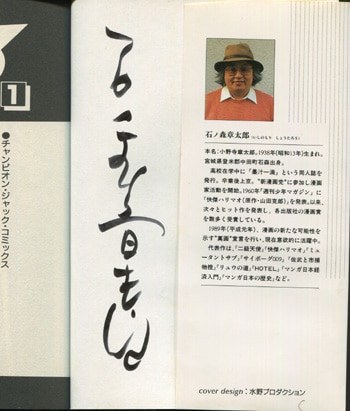 1
●チャンピオン・ジャック・コミックス
石ノ森章太郎
石ノ森章太郎（いしのもり しょうたろう）
本名：小野寺章太郎。1938年（昭和13年）生まれ。
宮城県登米郡中田町石森出身。
高校在学中に「墨汁一滴」という同人誌を
発行。卒業後上京。“新漫画党”に参加し漫画
家活動を開始。1960年「週刊少年マガジン」に
「快傑ハリマオ（原作・山田克郎）」を発表。以来、
次々とヒット作を発表し、各出版社の漫画賞
を数多く受賞している。
1989年（平成元年）、漫画の新たな可能性を
示す“萬画”宣言を行い、現在意欲的に活躍中。
代表作は、「二級天使」「快傑ハリマオ」「ミュ
ータントサブ」「サイボーグ009」「佐武と市捕
物控」「リュウの道」「HOTEL」「マンガ日本経
済入門」「マンガ日本の歴史」など。
cover design：水野プロダクション